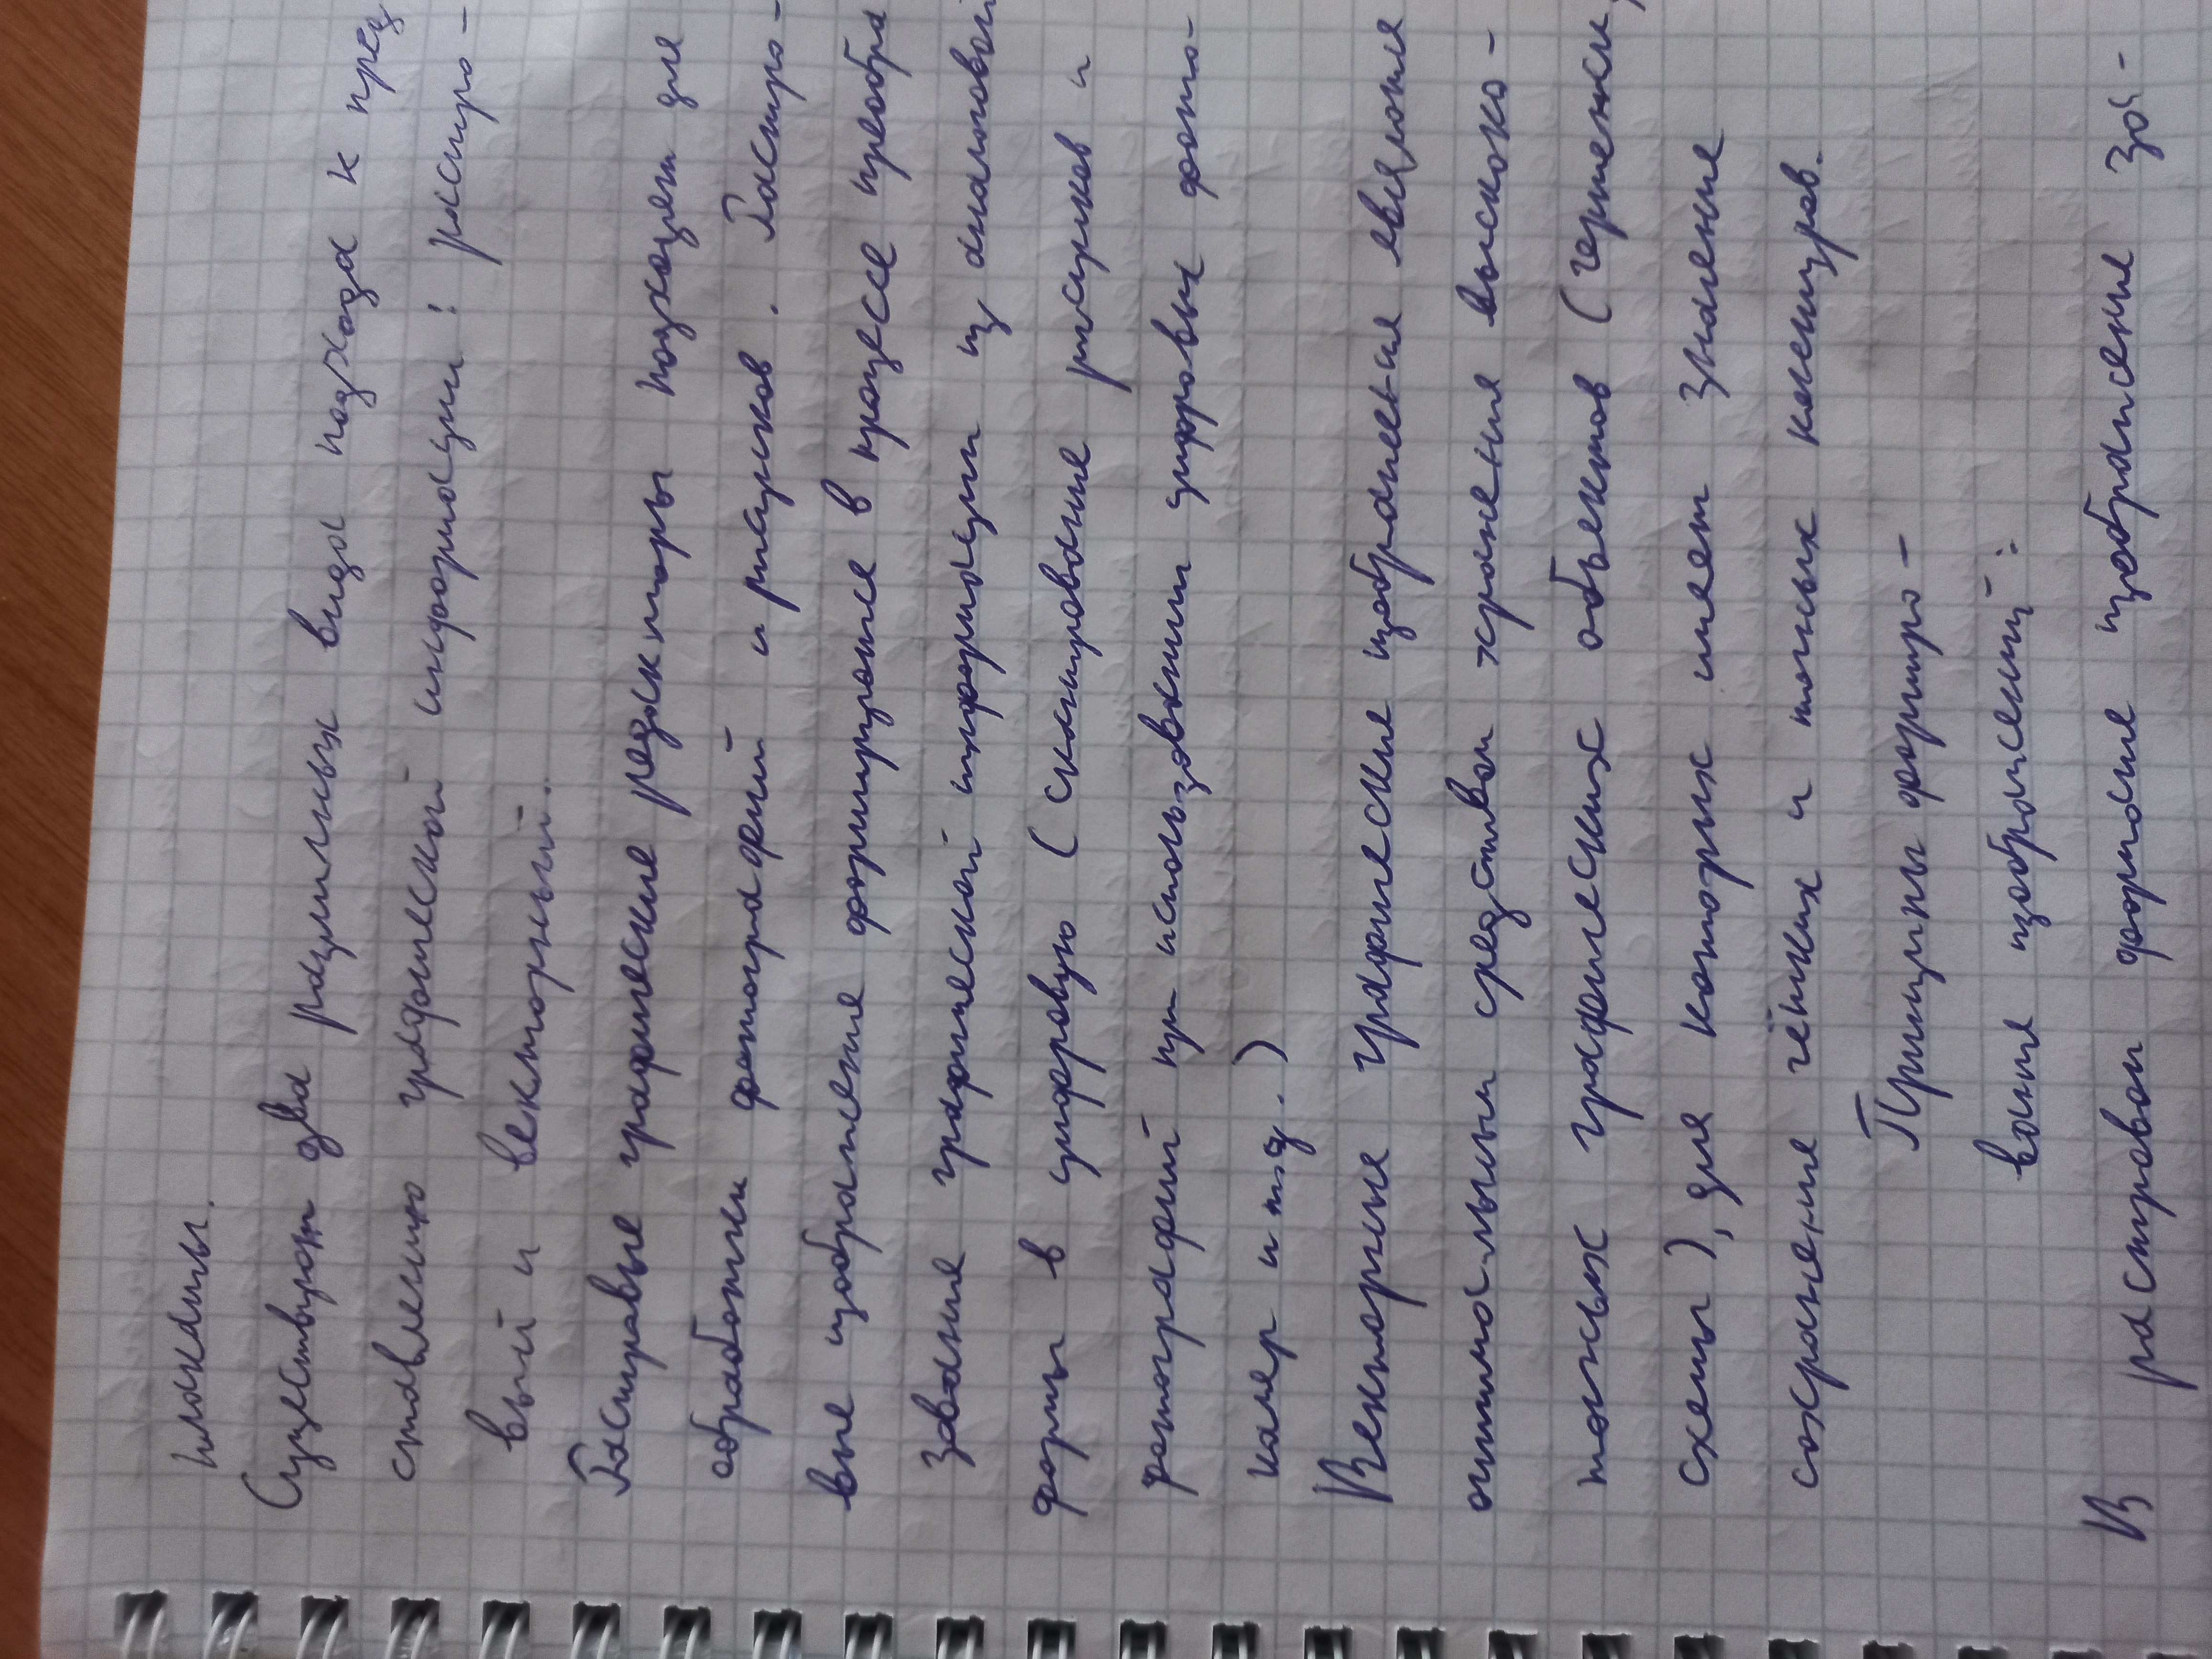 плакаты.
Существуют два различных вида подхода к пред
ставлению графической информации: растро-
вый и векторный.
Растровые графические редакторы подходят для
обработки фотографий и рисунков. Растро-
вые изображение формируются в процессе преобра
зование графической информации из аналоговой
формы в цифровую (сканирование рисунков и
фотографий при использовании цифровых фото-
камер и т.д.)
Векторные графические изображения являются
оптимальным средством хранения высоко-
точных графических объектов (чертежи,
схемы), для которых имеет значение
сохранение чётких и точных контуров.
Принципы формиро-
вания изображений:
В растровом формате изображение за-